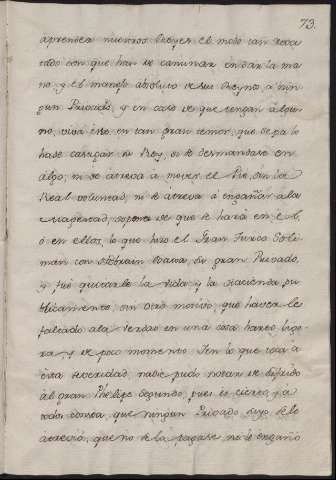 73.
aprendan nuestros Reyes el modo tan reca
tado con que han de caminar en dar la ma
no, y el manejo absoluto de sus Reynos a nin
gun Privado, y en caso de que tengan algu
no, viva éste en tan gran temor, que sepa lo
ha de castigar su Rey, si se desmandase en
algo; ni se atreva a mover el Pie sin la
Real voluntad, ni se atreva à engañar a la
Magestad, sopena de que se hará en el,
ó en ellos, lo que hizo el Gran Turco Soli
man con Ebrain Baxa, su gran Privado,
y fué quitarle la vida, y la Hacienda pu
blicamente, sin otro motivo, que haverle
faltado a la Verdad en una cosa harto lige
ra, y de poco momento. Y en lo que toca à
ésta severidad, nadie pudo notar de
al gran Phelipe Segundo, pues es cierto, y à
todos consta, que ningun Privado suyo se le
atrevió, que no se la pagase, no le engañó